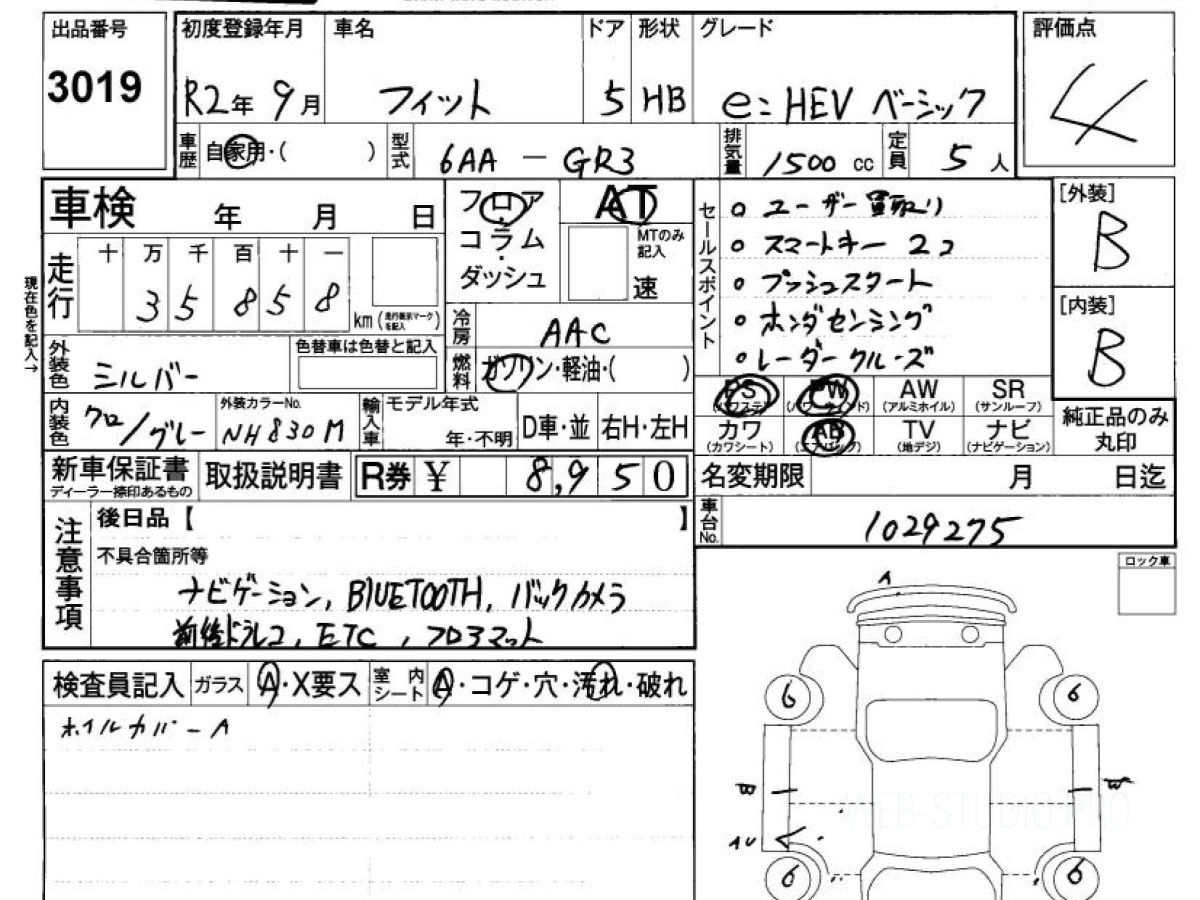 出品番号
3019
初度登録年月 車名 ドア 形状 グレード
R2年 9月 フィット 5 HB e:HEV ベーシック
評価点
4
車歴 自家用・( ) 型式 6AA - GR3 排気量 1500 cc 定員 5 人
車検 年 月 日
走行 十 万 千 百 十 一
3 5 8 5 8 km (走行表示マークを記入)
現在色を記入→
フロア・コラム・ダッシュ
AT
MTのみ記入
速
冷房 AAC
燃料 ガソリン・軽油・( )
外装色 シルバー 色替車は色替と記入
内装色 クロ/グレー 外装カラーNo. NH830M 輸入車 モデル年式 年・不明 D車・並 右H・左H
セールスポイント
○ ユーザー買取り
○ スマートキー 2コ
○ プッシュスタート
○ ホンダセンシング
○ レーダークルーズ
[外装]
B
[内装]
B
PS (パワステ) PW (パワーウインド) AW (アルミホイル) SR (サンルーフ)
カワ (カワシート) AB (エアバッグ) TV (地デジ) ナビ (ナビゲーション)
純正品のみ丸印
新車保証書 ディーラー捺印あるもの 取扱説明書 R券 ¥ 8,950
名変期限 月 日迄
車台No. 1029275
注意事項
後日品【 】
不具合箇所等
ナビゲーション, BlUETOOTH, バックカメラ
前後ドラレコ, ETC, フロアマット
検査員記入 ガラス A・X要ス 室内シート A・コゲ・穴・汚れ・破れ
ホイルカバーA
ロック車
A
6 6
W W
AU
6 6
WEB-STUDIO.PRO